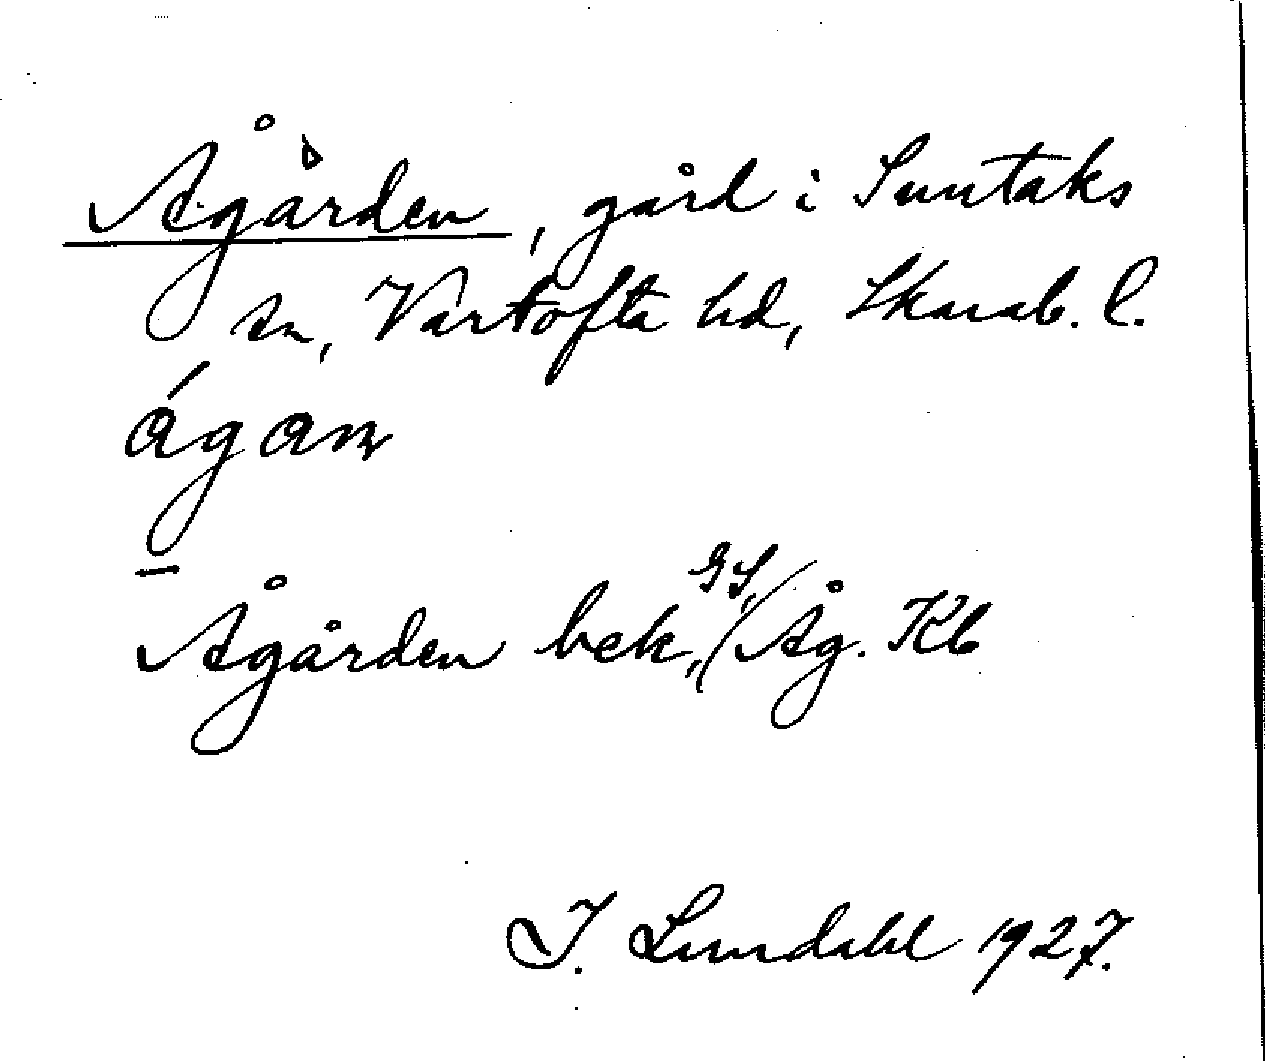 Ågården, gård i Suntaks
sn, Vartofta hd, Skarab. l.
ágan
Ågården bek., GS, / Åg. Kb
I. Lundahl 1927.